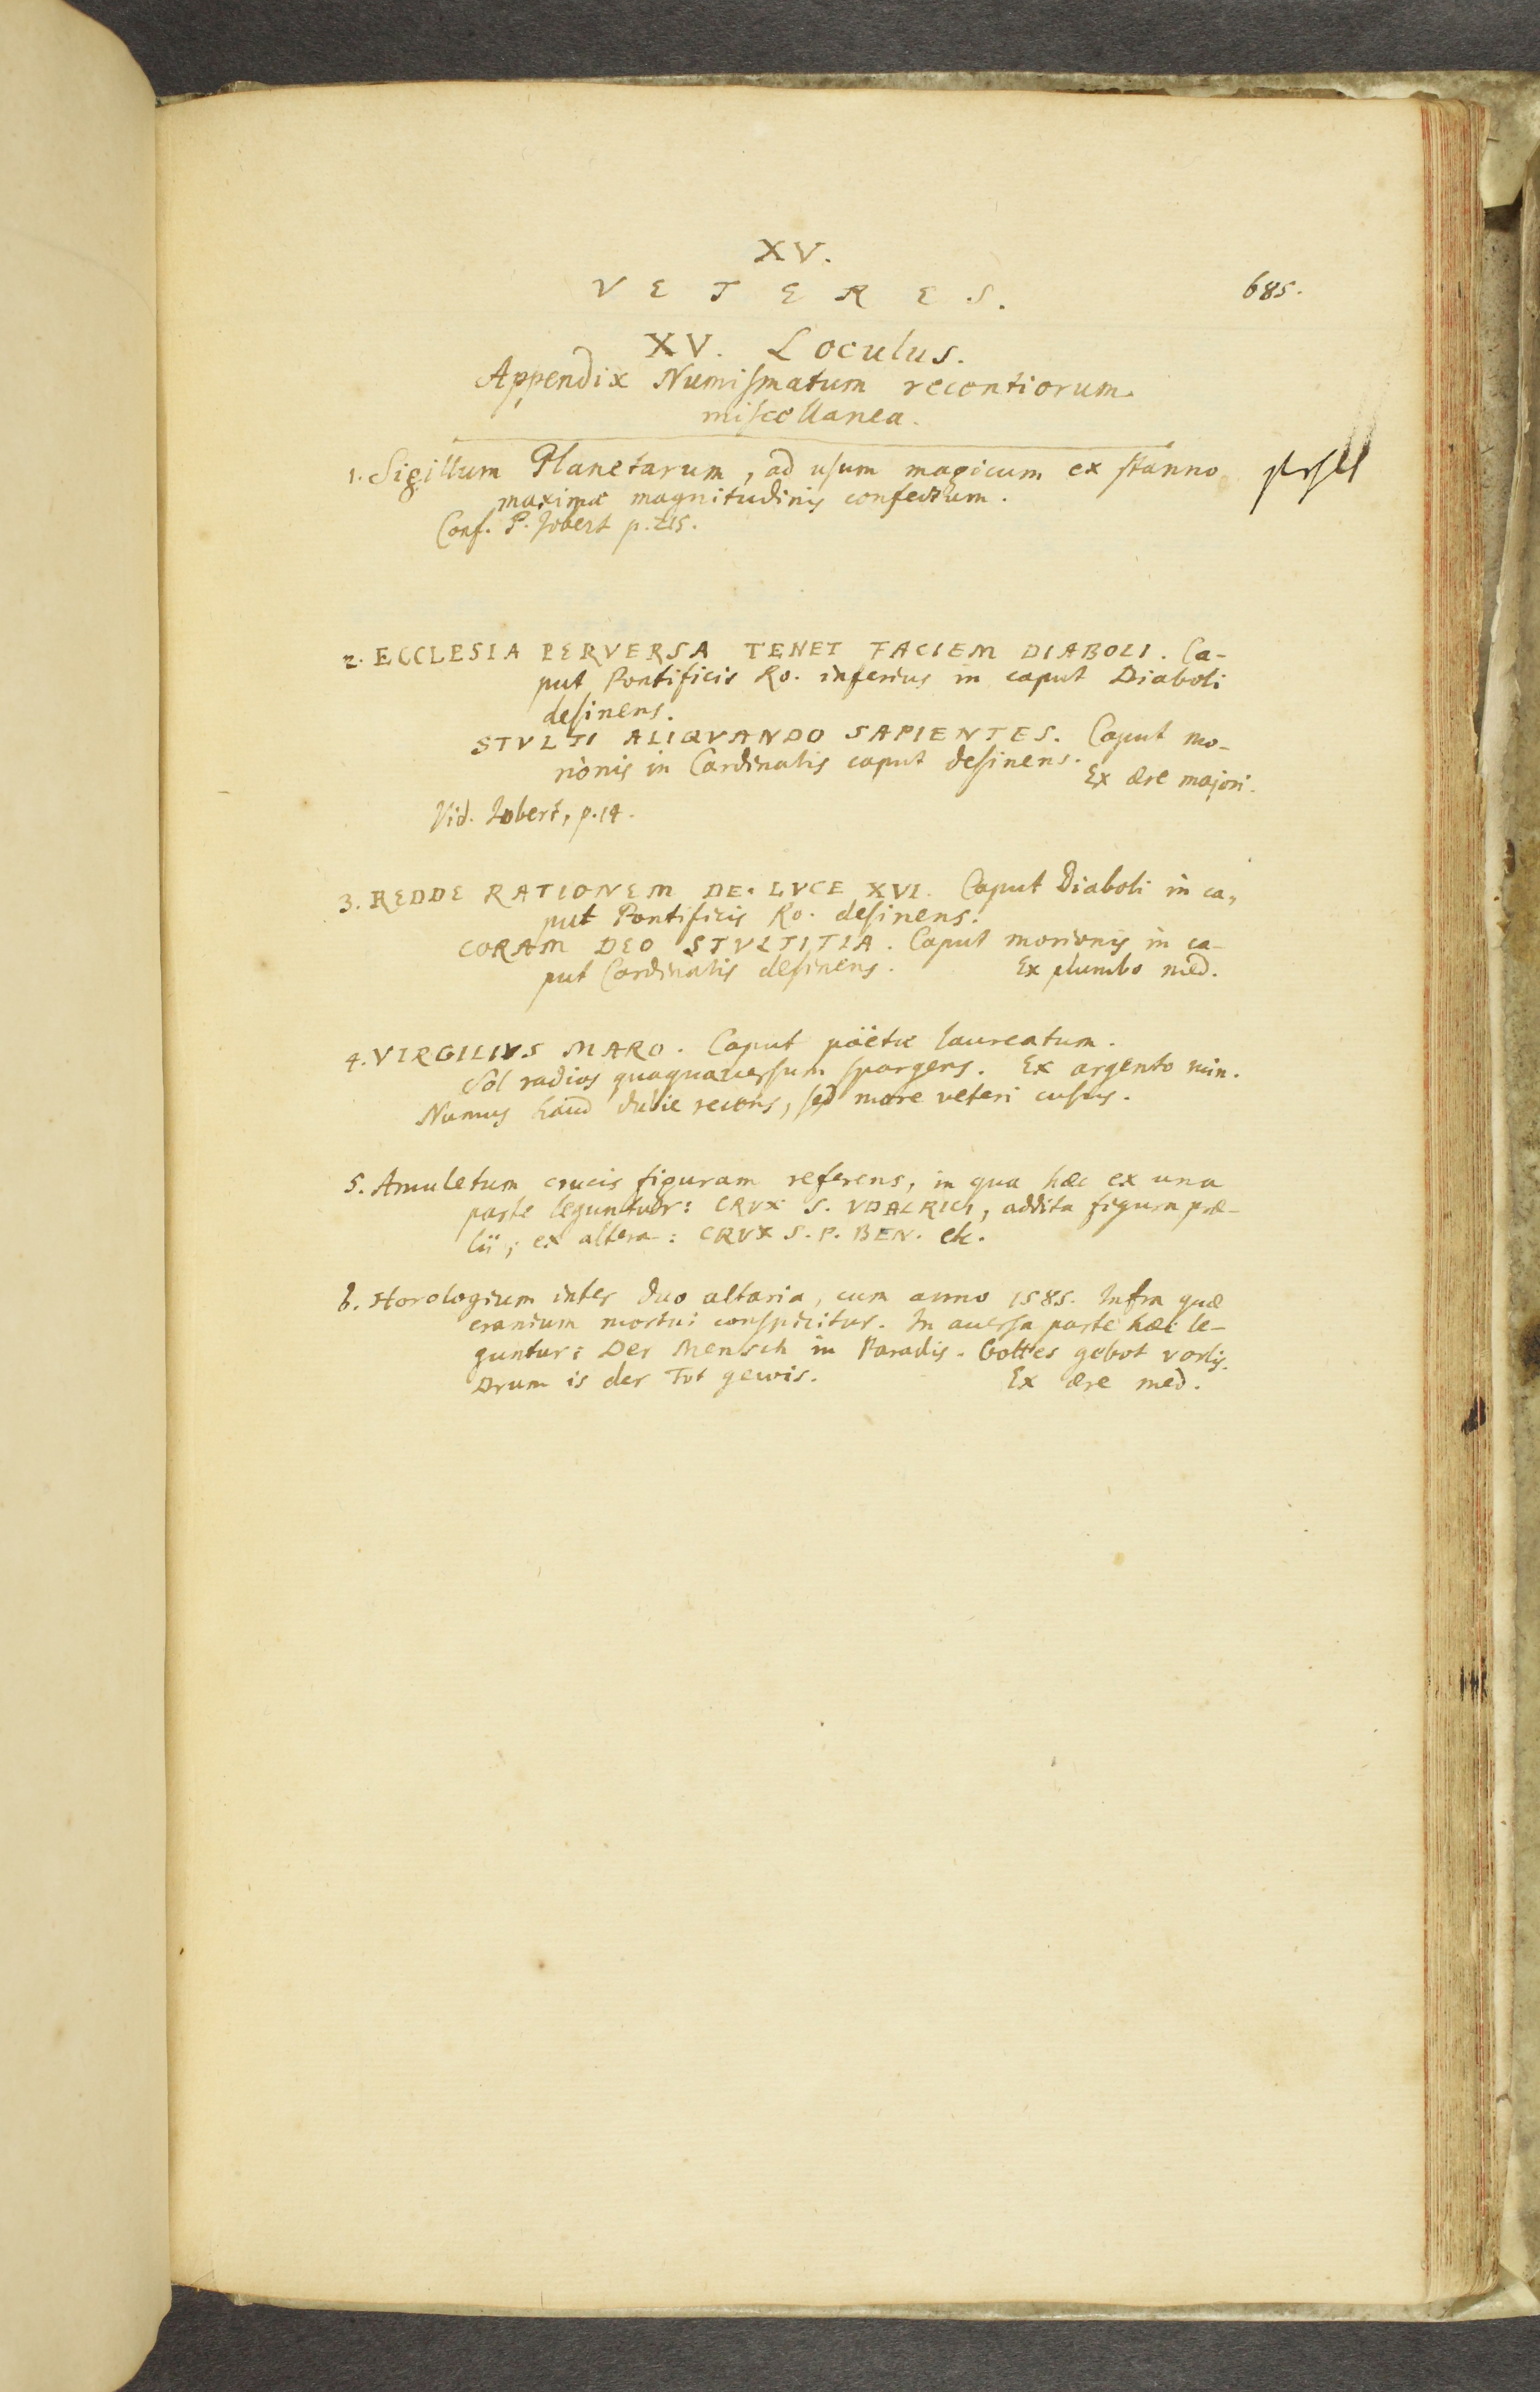 XV.
VETERES.
685.
XV. Loculus.
Appendix Numismatum recentiorum
miscellanea.
1. Sigillum Planetarum, ad usum magicum ex stanno
maximæ magnitudinis confectum.
Conf. P. Jobert p. 215.
2. ECCLESIA PERVERSA TENET FACIEM DIABOLI. Ca-
put Pontificis Ro. inferius in caput Diaboli
desinens.
STVLTI ALIQVANDO SAPIENTES. Caput mo-
rionis in Cardinalis caput desinens.
Ex ære majori.
Vid. Jobert, p. 14.
3. REDDE RATIONEM DE. LVCE XVI. Caput Diaboli in ca-
put Pontificis Ro. desinens.
CORAM DEO STVLTITIA. Caput morionis in ca-
put Cardinalis desinens. Ex plumbo med.
4. VIRGILIVS MARO. Caput poëtæ laureatum.
Sol radios quaquaversum spargens. Ex argento min.
Numus haud dubie recens, sed more veteri cusus.
5. Amuletum crucis figuram referens, in qua hæc ex una
parte leguntur: CRVX S. VDALRICI, addita figura præ-
lii; ex altera: CRVX S. P. BEN. etc.
6. Horologium inter duo altaria, cum anno 1585. Infra quæ
cranium mortui conspicitur. In aversa parte hæc le-
guntur: Der Mensch in Paradis. Gottes gebot vorlis.
Drum is der Tot gewis. Ex ære med.